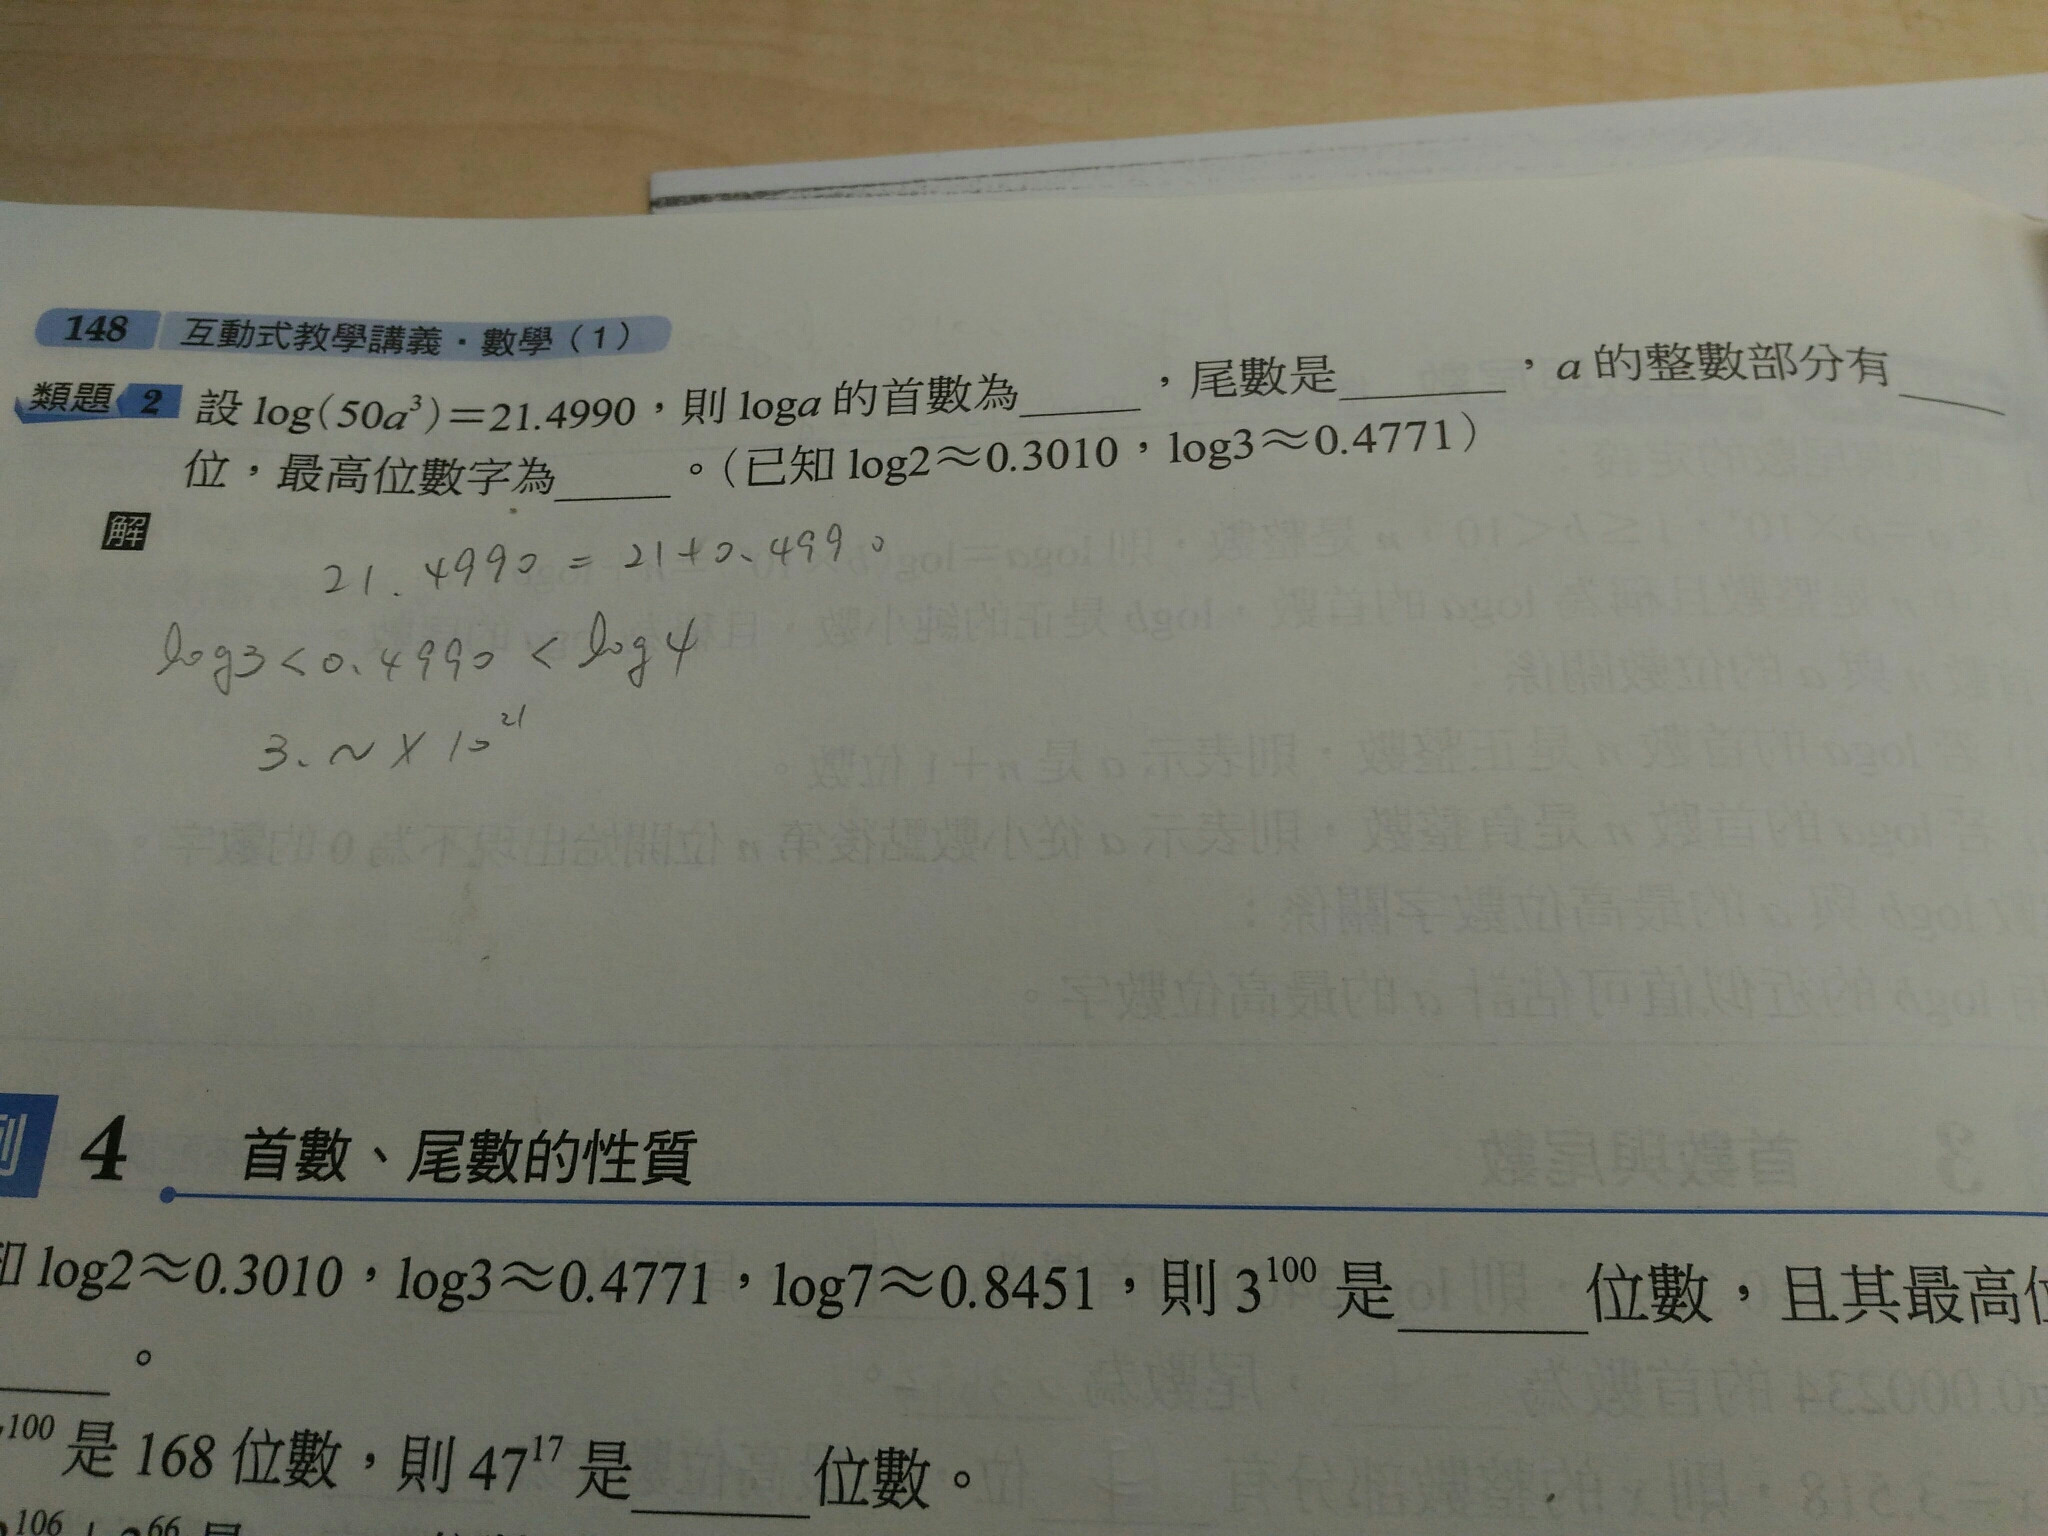 148 互動式教學講義·數學(1)
類題 2 設 log(50a³)=21.4990，則 loga 的首數為____，尾數是____，a 的整數部分有____
位，最高位數字為____。(已知 log2≈0.3010，log3≈0.4771)
解
21.4990 = 21+0.4990
log3 < 0.4990 < log4
3.~ × 10²¹
例 4 首數、尾數的性質
log2≈0.3010，log3≈0.4771，log7≈0.8451，則 3¹⁰⁰ 是____位數，且其最高位
____。
¹⁰⁰ 是 168 位數，則 47¹⁷ 是____位數。